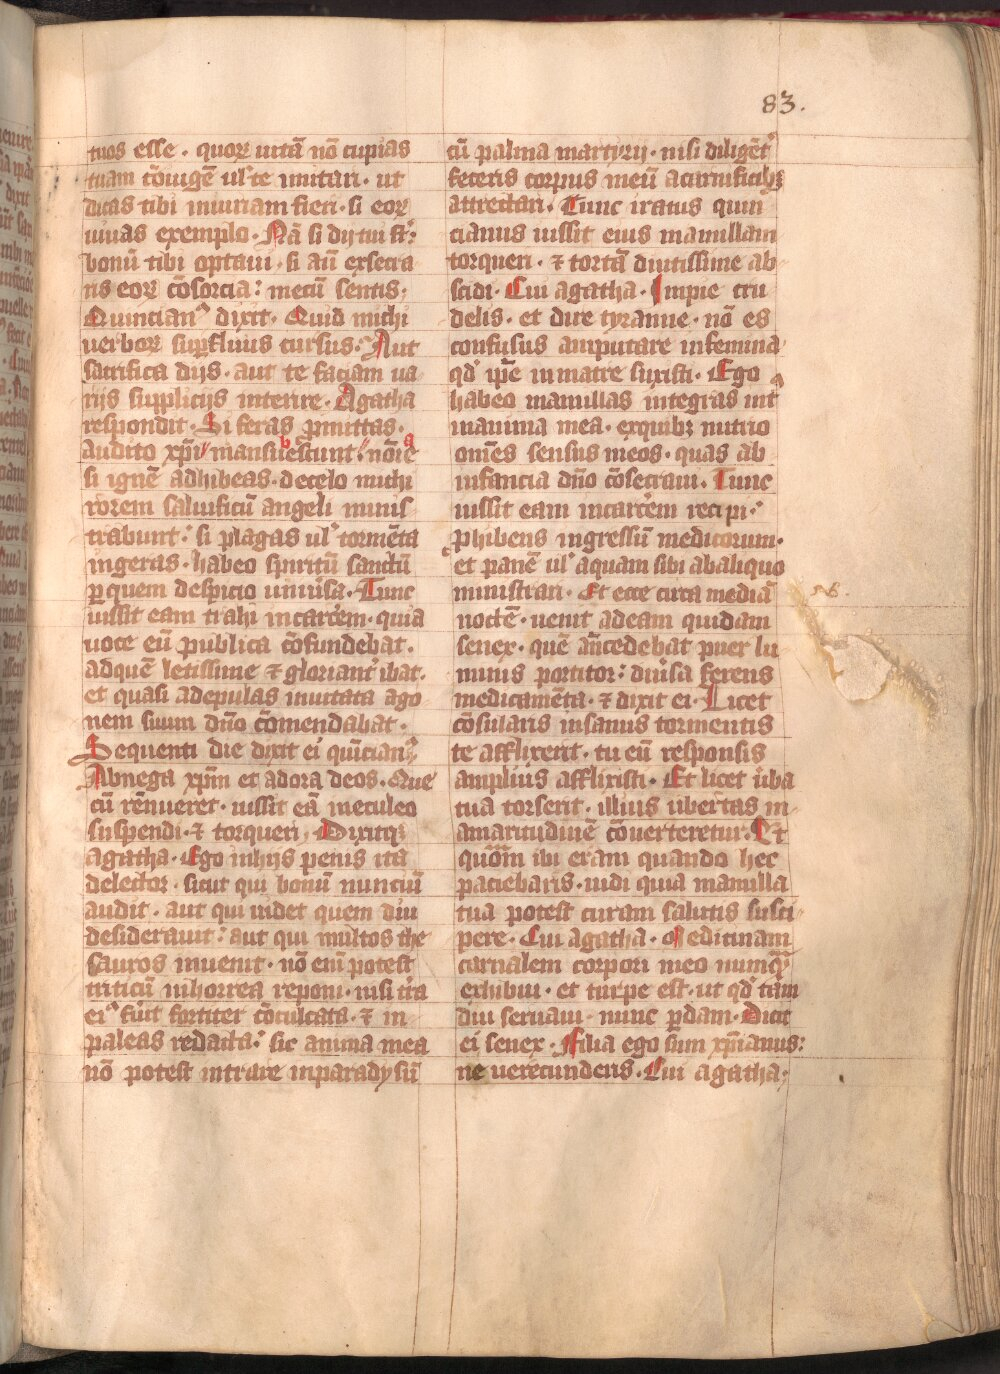 83.
tuos esse · quoꝝ uitā nō cupias
tuam cōiugē ul' te imitari · ut
dicas tibi iniuriam fieri · si eoꝝ
uiuas exemplo · Nā si dij tui st̄ :
bonū tibi optaui · si aūt exsecra
ris eoꝝ cōsorcia : mecū sentis ;
Quincian⁹ dixit · Quid michi
uerboꝝ suꝑfluus cursus · Aut
sacrifica dijs · aut te faciam ua
rijs supplicijs interire · Agatha
respondit · Si feras ꝓmittas ·
audito xp̄i // mansuescunt // nōie
b a
si ignē adhibeas · de celo michi
rorem saluificū angeli minis
trabunt : si plagas ul' tormēta
ingeras · habeo spiritū sanctū
ꝑ quem despicio uniuersa · Tunc
iussit eam trahi in carcērem · quia
uoce eū publica cōfundebat ·
ad quē letissime ⁊ gloriant' ibat ·
et quasi ad epulas inuitata ago
nem suum dn̄o cōmendabat ·
Sequenti die dixit ei quīcian⁹ ·
Abnega xp̄m et adora deos · Que
cū rēnueret · iussit eā in eculeo
suspendi · ⁊ torqueri · Dixitqꝫ
agatha · Ego in hijs penis ita
delector · sicut qui bonū nunciū
audit · aut qui uidet quem diu
desiderauit : aut qui multos the
sauros inuenit · nō enī potest
triticū in horrea reponi · nisi t'ra
ei⁹ fuerit fortiter cōculcata · ⁊ in
paleas redacta : sic anima mea
nō potest intrare in paradysū
cū palma martyrij · nisi diligēt'
feceris corpus meū a carnificibꝫ
attrectari · Tunc iratus quin
cianus iussit eius mamillam
torqueri · ⁊ tortā diutissime ab
scidi · Cui agatha · Impie cru
delis · et dire tyranne · nō es
confusus amputare in femina
qd' ip̄e in matre suxisti · Ego
habeo mamillas integras int'
in anima mea · ex quibꝫ nutrio
omēs sensus meos · quas ab
infancia dn̄o cōsecraui · Tunc
iussit eam in carcērem recipi :
ꝓhibens ingressū medicorum ·
et panē ul' aquam sibi ab aliquo
ministrari · Et ecce circa mediā
noctē · uenit ad eam quidam
senex · quē ācedebat puer lu
minis portitor : diu'sa ferens
medicamēta · ⁊ dixit ei · Licet
cōsularis insanus tormentis
te afflixerit · tu eū responsis
amplius afflixisti · Et licet ub'a
tua torserit · illius ubertas in
amaritudinē cōuerteretur · Et
quōm ibi eram quando hec
paciebaris · uidi quia mamilla
tua potest curam salutis susci
pere · Cui agatha · Medicinam
carnalem corpori meo numq̄
exhibui · et turpe est · ut qd' tam
diu seruaui · nunc ꝑdam · Dicit
ei senex · Filia ego sum xp̄ianus :
ne uerecunderis · Cui agatha ·